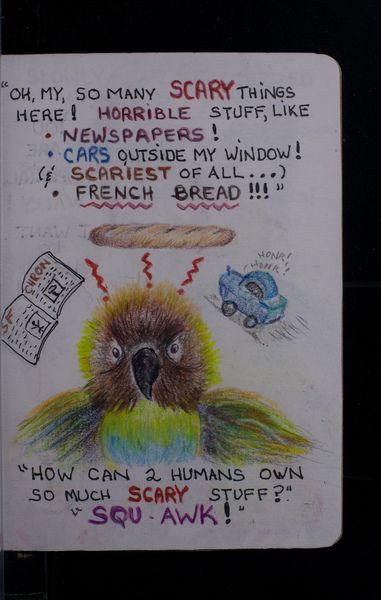 "OH, MY, SO MANY SCARY THINGS
HERE! HORRIBLE STUFF, LIKE
• NEWSPAPERS!
• CARS OUTSIDE MY WINDOW!
(& SCARIEST OF ALL...)
• FRENCH BREAD!!!"
HONK!!
HONK!
CHRON
"HOW CAN 2 HUMANS OWN
SO MUCH SCARY STUFF?"
"SQU-AWK!"